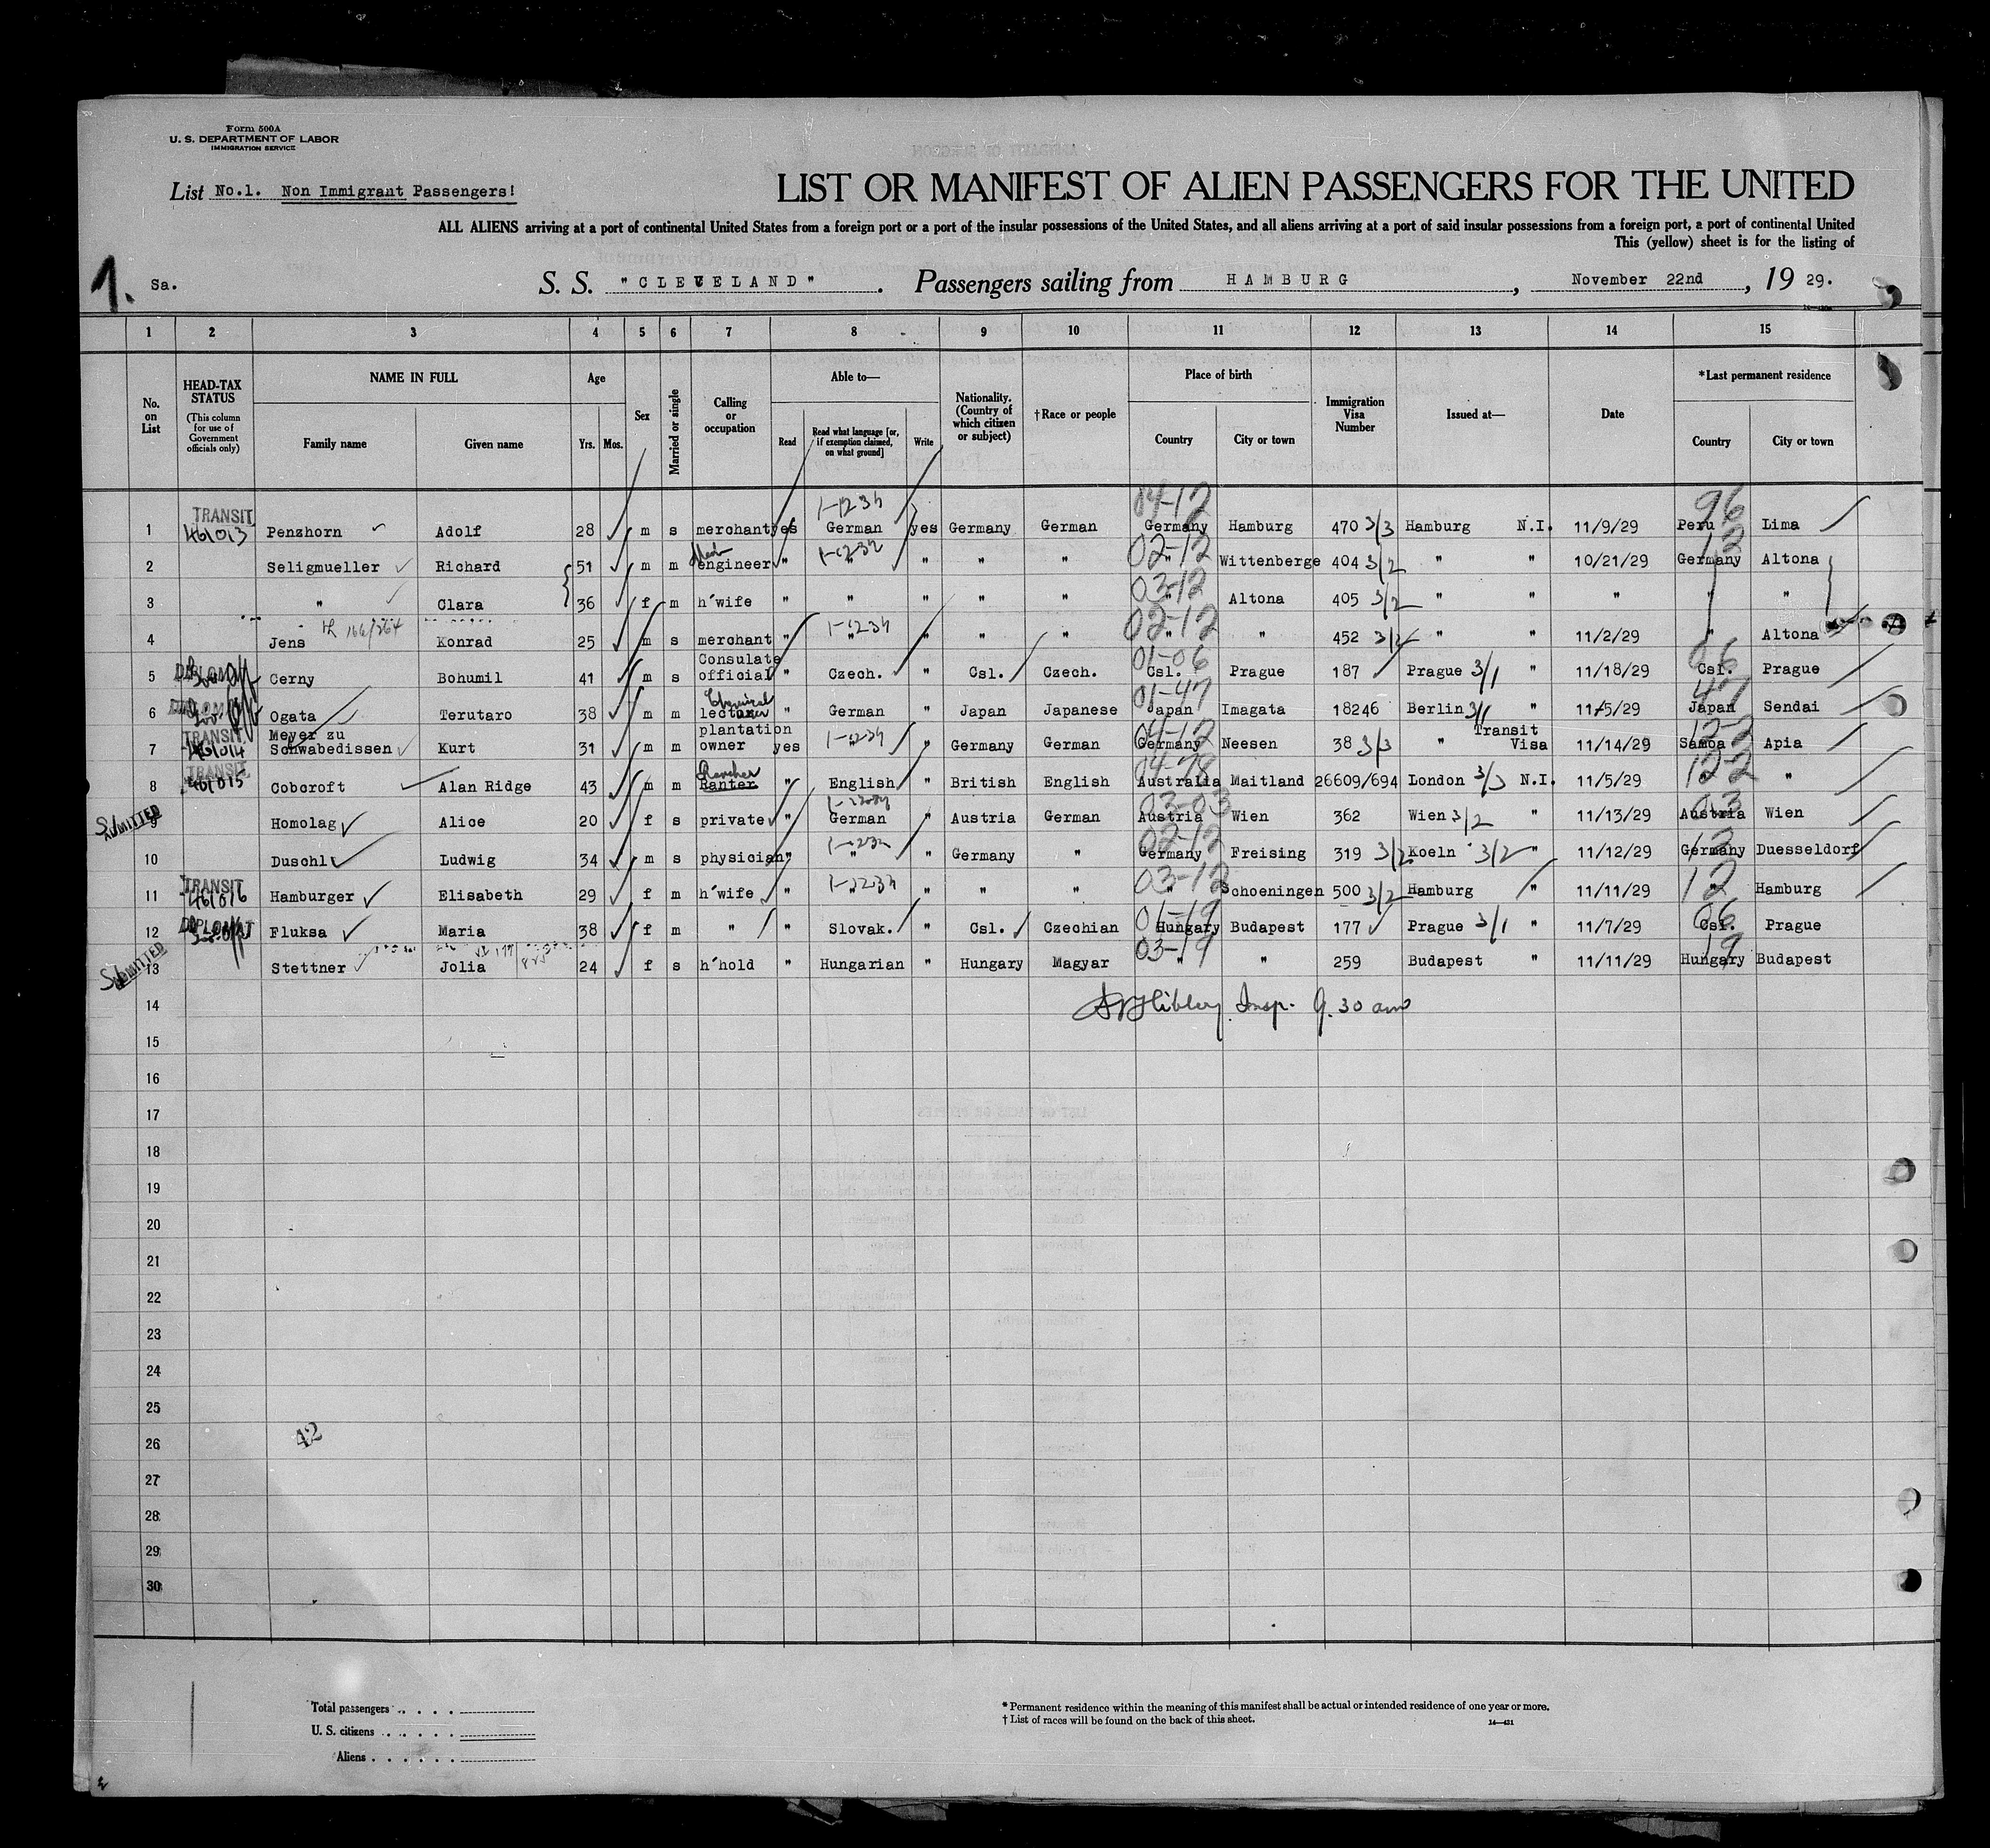 Form 500A
U. S. DEPARTMENT OF LABOR
IMMIGRATION SERVICE
List No.1. Non Immigrant Passengers!
LIST OR MANIFEST OF ALIEN PASSENGERS FOR THE UNITED
ALL ALIENS arriving at a port of continental United States from a foreign port or a port of the insular possessions of the United States, and all aliens arriving at a port of said insular possessions from a foreign port, a port of continental United
This (yellow) sheet is for the listing of
1. Sa. S. S. "CLEVELAND" . Passengers sailing from HAMBURG , November 22nd , 19 29.
1 2 3 4 5 6 7 8 9 10 11 12 13 14 15
No. on List
HEAD-TAX STATUS (This column for use of Government officials only)
NAME IN FULL Family name Given name
Age Yrs. Mos.
Sex
Married or single
Calling or occupation
Able to— Read Read what language [or, if exemption claimed, on what ground] Write
Nationality. (Country of which citizen or subject)
†Race or people
Place of birth Country City or town
Immigration Visa Number
Issued at—
Date
*Last permanent residence Country City or town
TRANSIT 1-1234 04-12 96
1 461013 Penzhorn Adolf 28 m s merchant yes German yes Germany German Germany Hamburg 470 3/3 Hamburg N.I. 11/9/29 Peru Lima
02-12 12
2 Seligmueller Richard 51 m m engineer " " " " " " Wittenberge 404 3/2 " " 10/21/29 Germany Altona
03-12
3 " Clara 36 f m h'wife " " " " " " Altona 405 3/2 " " " " "
02-12
4 Jens Konrad 25 m s merchant " " " " " " " 452 3/2 " " 11/2/29 " Altona
DIPLOMAT Consulate 01-06 06
5 Cerny Bohumil 41 m s official " Czech. " Csl. Czech. Csl. Prague 187 Prague 3/1 " 11/18/29 Csl. Prague
Chemical 01-47 47
6 Ogata Terutaro 38 m m lecturer " German " Japan Japanese Japan Imagata 18246 Berlin 3/1 " 11/5/29 Japan Sendai
TRANSIT Meyer zu plantation 04-12 Transit 12-2
7 461014 Schwabedissen Kurt 31 m m owner yes " " Germany German Germany Neesen 38 3/3 " Visa 11/14/29 Samoa Apia
TRANSIT Rancher 04-78 12-2
8 461015 Cobcroft Alan Ridge 43 m m Ranter " English " British English Australia Maitland 26609/694 London 3/3 N.I. 11/5/29 "
ADMITTED 03-03 03
9 Homolag Alice 20 f s private " German " Austria German Austria Wien 362 Wien 3/2 " 11/13/29 Austria Wien
02-12 12
10 Duschl Ludwig 34 m s physician " " " Germany " Germany Freising 319 3/2 Koeln 3/2 " 11/12/29 Germany Duesseldorf
TRANSIT 03-12 12
11 461016 Hamburger Elisabeth 29 f m h'wife " " " " " " Schoeningen 500 3/2 Hamburg " 11/11/29 " Hamburg
DIPLOMAT 01-19 06
12 Fluksa Maria 38 f m " " Slovak. " Csl. Czechian Hungary Budapest 177 Prague 3/1 " 11/7/29 Csl. Prague
ADMITTED 03-19 19
13 Stettner Jolia 24 f s h'hold " Hungarian " Hungary Magyar " " 259 Budapest " 11/11/29 Hungary Budapest
14 Insp. 9.30 am
15
16
17
18
19
20
21
22
23
24
25
26 42
27
28
29
30
Total passengers
U. S. citizens
Aliens
*Permanent residence within the meaning of this manifest shall be actual or intended residence of one year or more.
†List of races will be found on the back of this sheet.
14—431